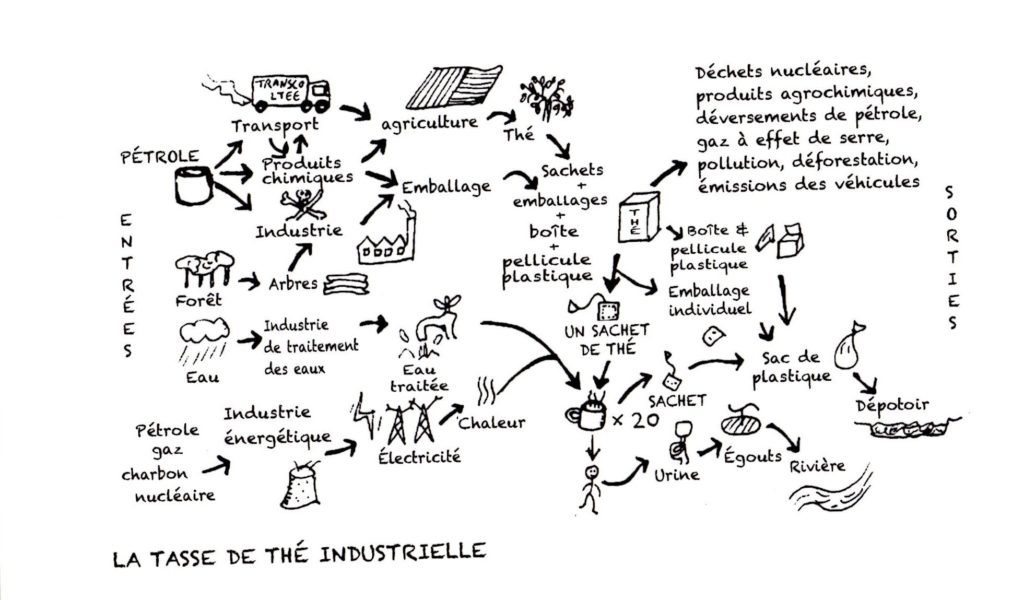 TRANSCO
LTEE
Transport
PÉTROLE
Produits
chimiques
Industrie
agriculture
Thé
Emballage
Sachets
+
emballages
+
boîte
+
pellicule
plastique
THÉ
Déchets nucléaires,
produits agrochimiques,
déversements de pétrole,
gaz à effet de serre,
pollution, déforestation,
émissions des véhicules
ENTRÉES
SORTIES
Forêt
Arbres
Boîte &
pellicule
plastique
Emballage
individuel
UN SACHET
DE THÉ
Eau
Industrie
de traitement
des eaux
Eau
traitée
Sac de
plastique
SACHET
× 20
Dépotoir
Pétrole
gaz
charbon
nucléaire
Industrie
énergétique
Électricité
Chaleur
Urine
Égouts
Rivière
LA TASSE DE THÉ INDUSTRIELLE